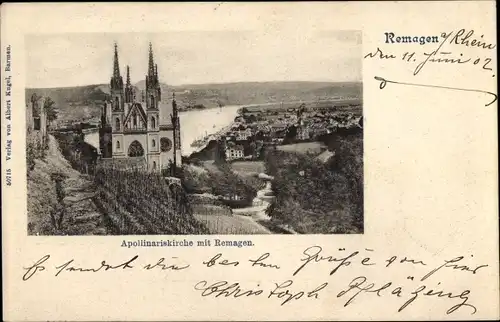 Remagen a/Rhein
den 11. Juni 02
40715 Verlag von Albert Kugel, Barmen.
Apollinariskirche mit Remagen.
Es sendet die besten Grüße von hier
Christoph